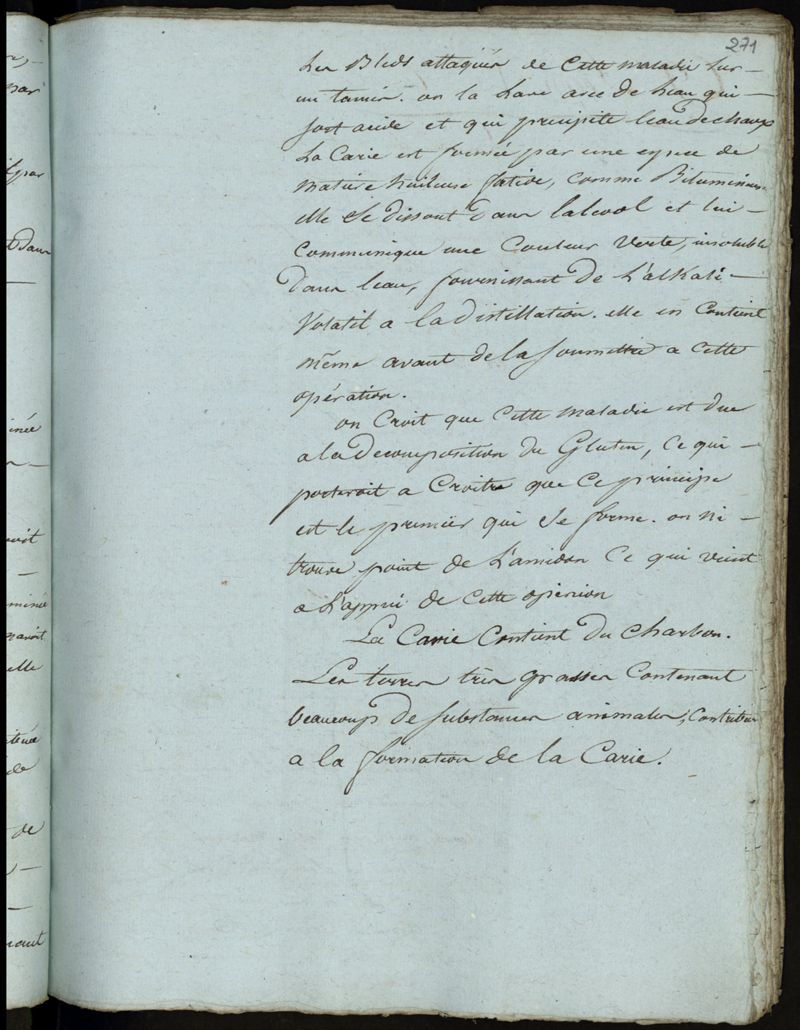 271
les Bleds attaqués de Cette maladie sur –
un tamis. on la lave avec de leau qui –
sort acide et qui précipite leau de chaux
La Carie est formée par une espece de
matiere huileuse fœtide, comme Bitumineuse
elle se dissout dans lalcool et lui –
Communique une Couleur verte, insoluble
dans leau, fournissant de L'alkali –
Volatil a la distillation. elle en Contient
même avant de la soumettre a Cette
opération.
on Croit que Cette maladie est due
a la decomposition du Gluten, Ce qui –
porterait a Croitre que Ce principe
est le premier qui se forme. on ni –
trouve point de L'amidon Ce qui vient
a L'appui de Cette opinion
La Carie Contient du Charbon.
Les terres très grasses Contenant
beaucoup de substances animales, Contribue
a la formation de la Carie.